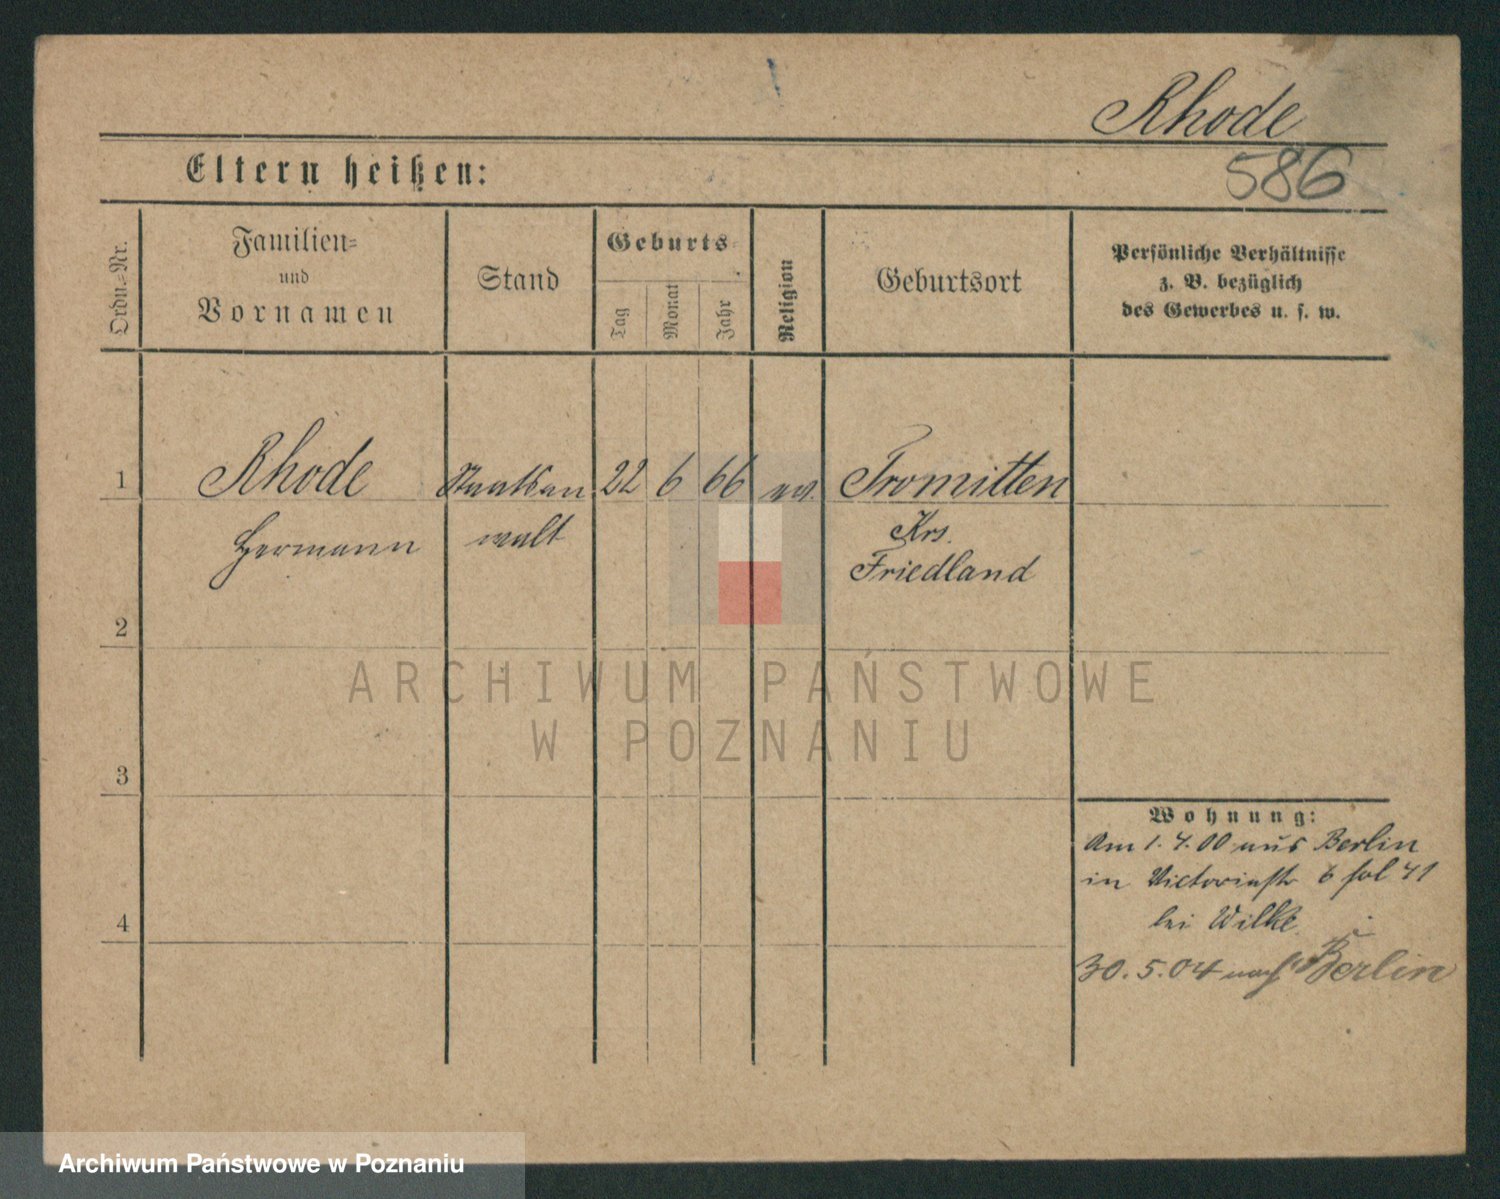 Rhode
586
Eltern heißen:
Ordn.=Nr.
Familien=
und
Vornamen
Stand
Geburts=
Tag
Monat
Jahr
Religion
Geburtsort
Persönliche Verhältnisse
z. B. bezüglich
des Gewerbes u. s. w.
1 Rhode Staatsan 22 6 66 ev. Tromitten
Hermann walt Krs.
Friedland
2
3
4
Wohnung:
Am 1. 4. 00 aus Berlin
in Victoriastr 6 fol 41
bei Wilke
30. 5. 04 nach Berlin
ARCHIWUM PAŃSTWOWE
W POZNANIU
Archiwum Państwowe w Poznaniu